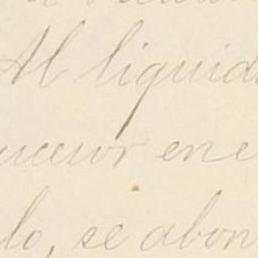 Al liquid
ucesor en e
do, se abon